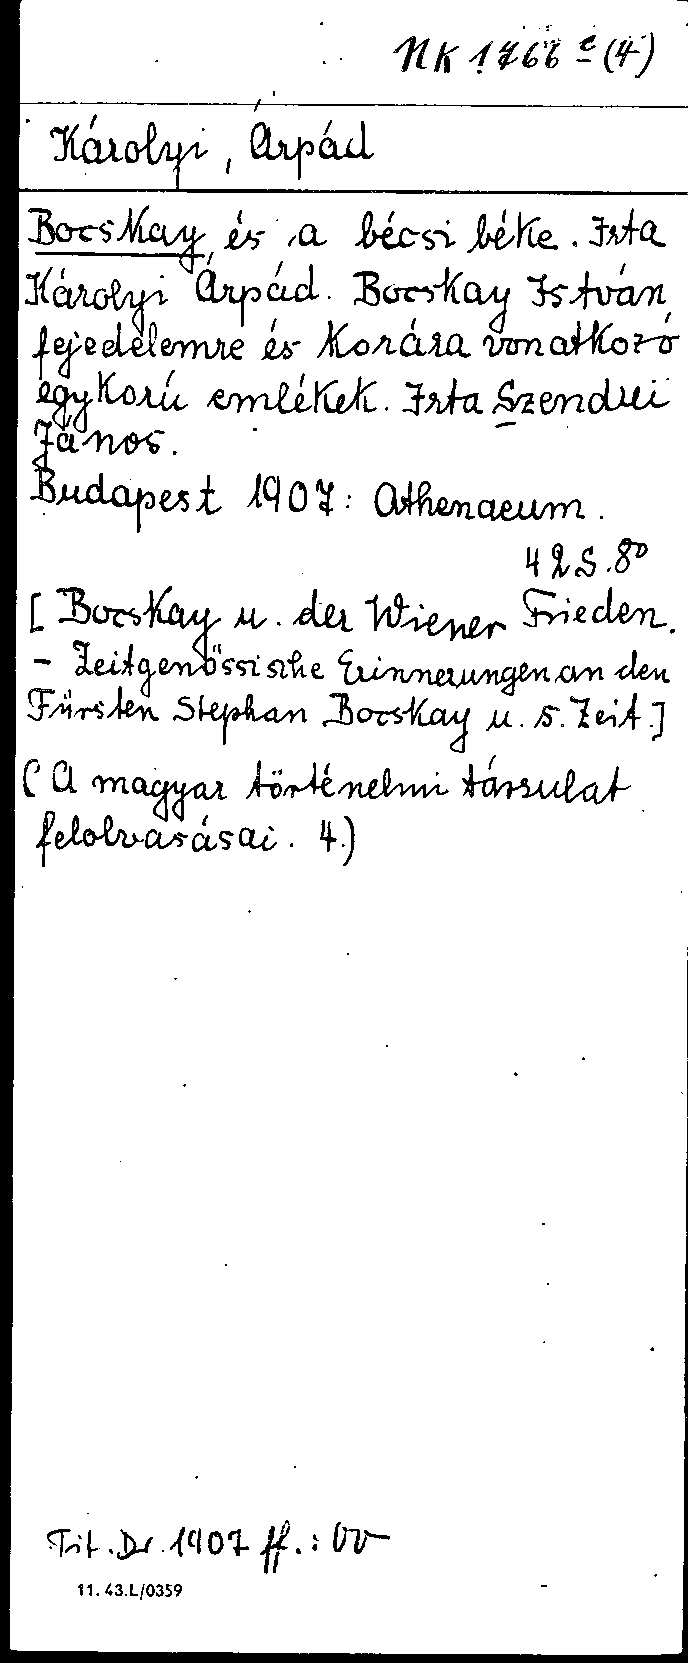 NK 1766 c (4)
Károlyi, Árpád
Bocskay és a bécsi béke. Irta
Károlyi Árpád. Bocskay István
fejedelemre és korára vonatkozó
egykorú emlékek. Irta Szendrei
János.
Budapest 1907: Athenaeum.
42 S. 8°
[Bocskay u. der Wiener Frieden.
- Zeitgenössische Erinnerungen an den
Fürsten Stephan Bocskay u. s. Zeit.]
(A magyar történelmi társulat
felolvasásai. 4.)
Tit. Dr. 1907 ff.:
11. 43.L/0359